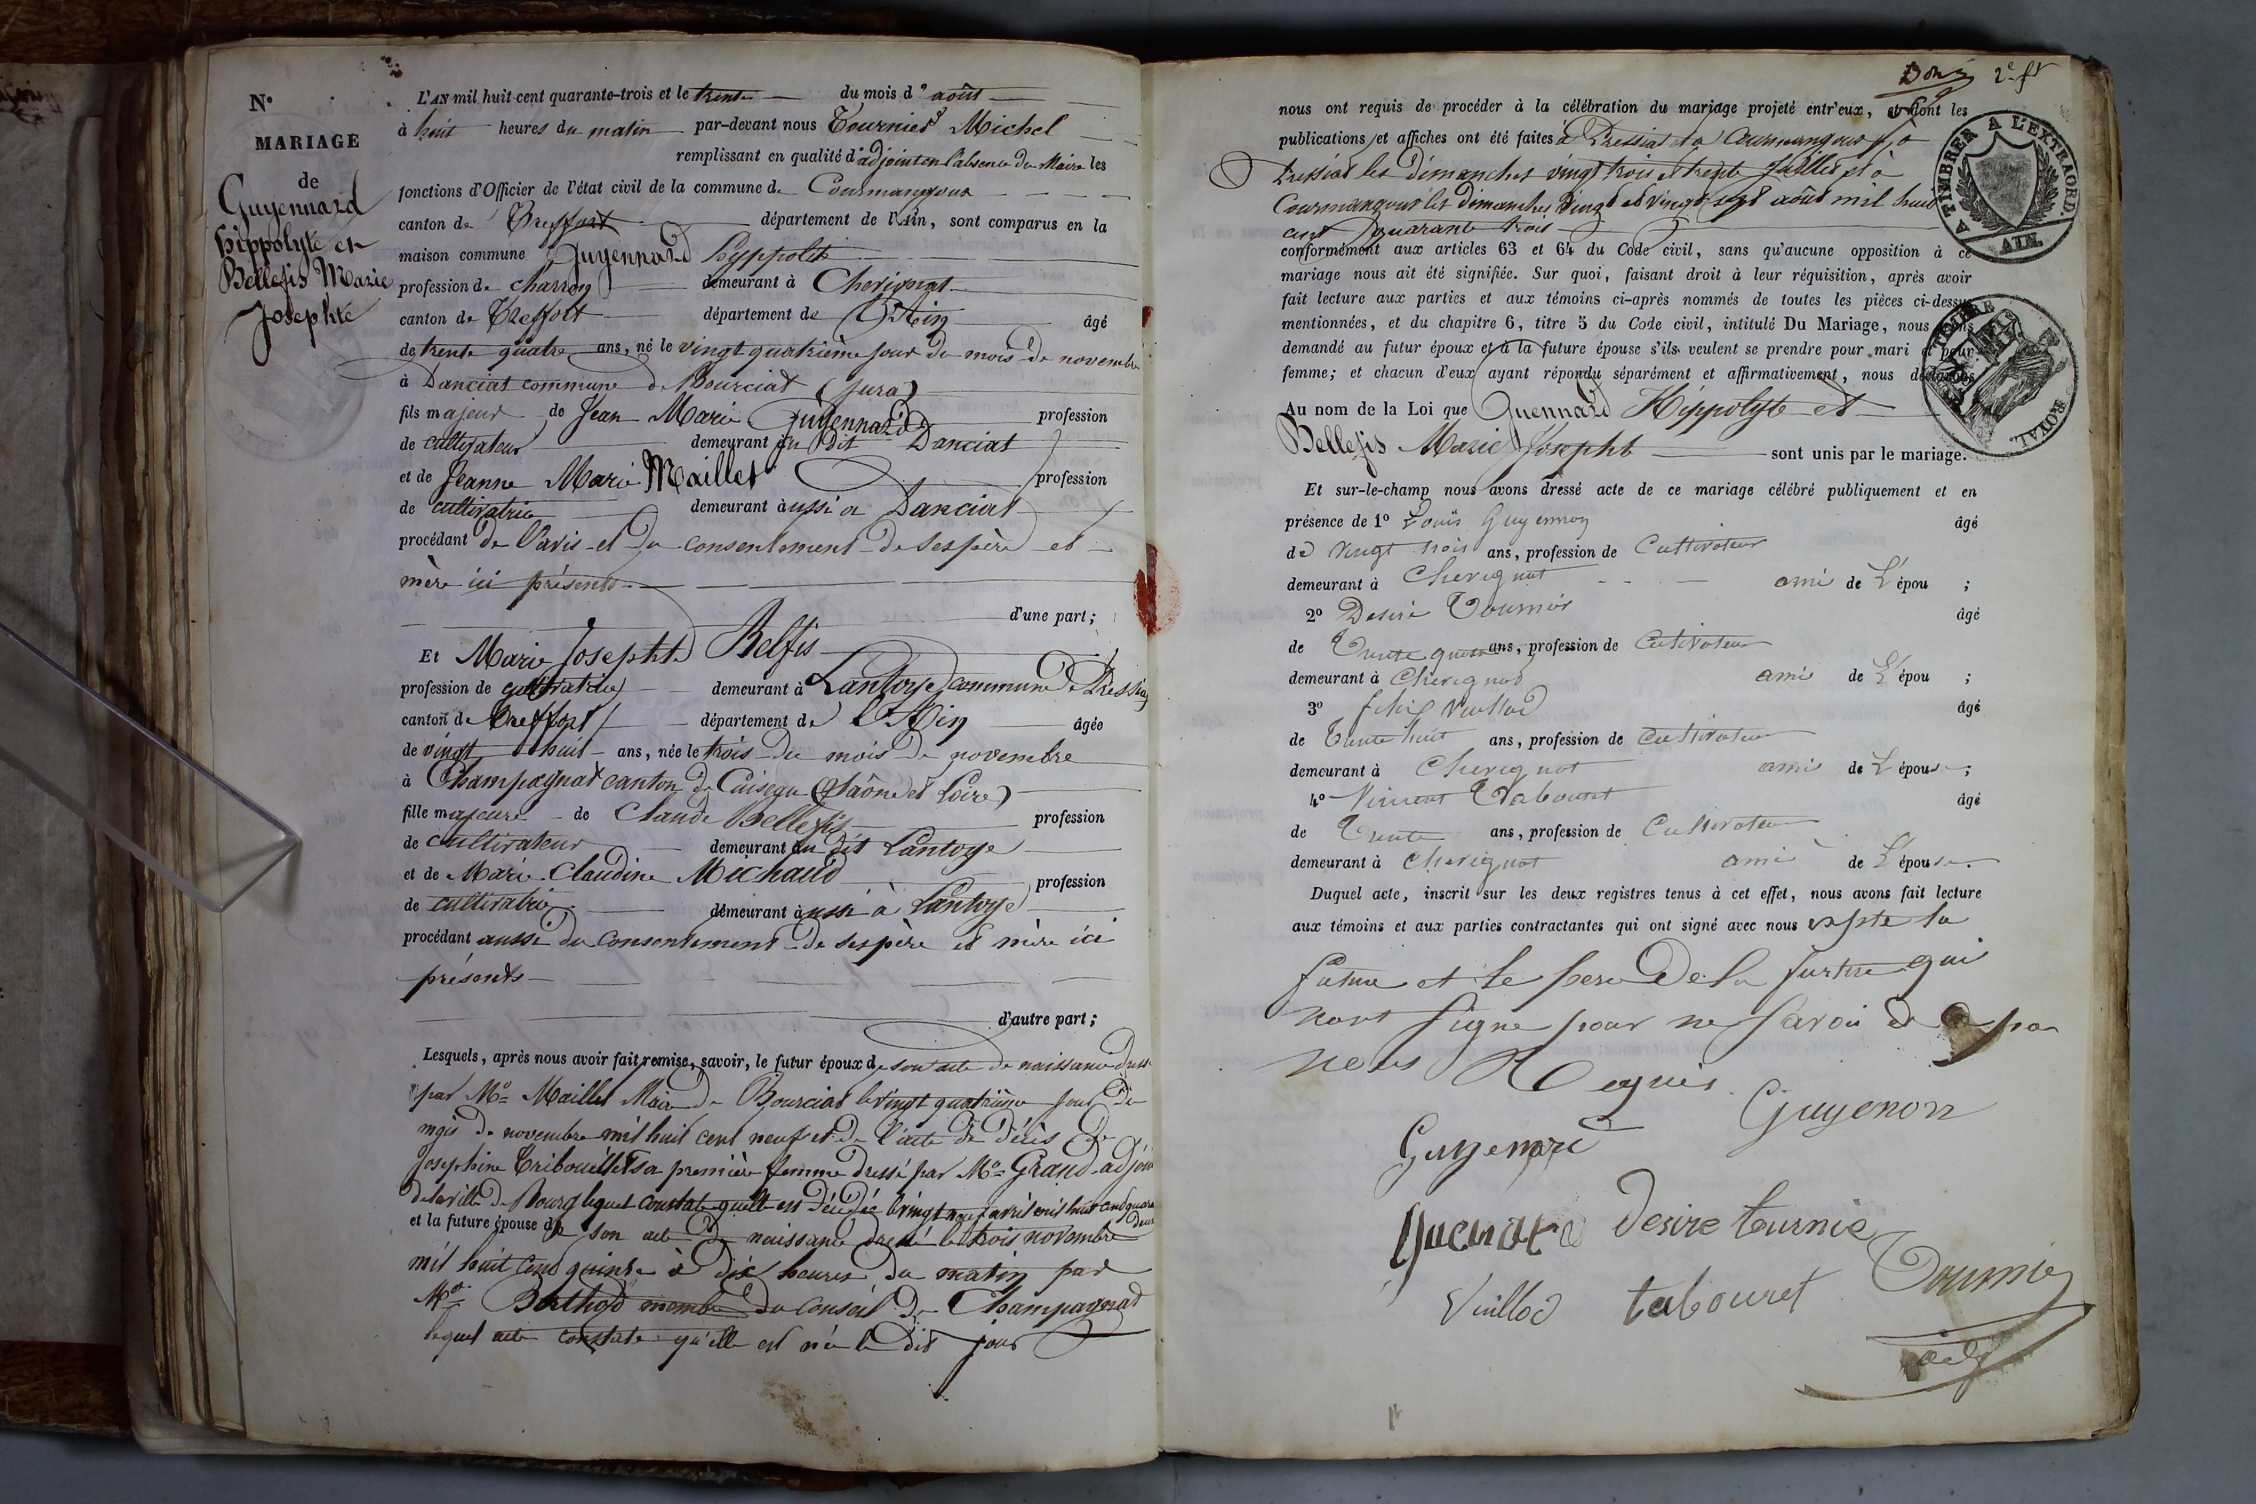 N°
MARIAGE
de
Guyennard
hippolyte et
Bellefis Marie
Josephte
L'AN mil huit cent quarante-trois et le trente du mois d' août
à huit heures du matin par-devant nous Tournier Michel
remplissant en qualité d'adjoint en l'absence du Maire les
fonctions d'Officier de l'état civil de la commune de Courmangoux
canton de Treffort département de l'Ain, sont comparus en la
maison commune Guyennard hyppolite
profession de charron demeurant à Chevignat
canton de Treffort département de l'Ain âgé
de trente quatre ans, né le vingt quatrième jour du mois de novembre
à Danciat commune de Bourciat (Jura)
fils majeur de Jean Marie Guyennard profession
de cultivateur demeurant au dit Danciat
et de Jeanne Marie Maillet profession
de cultivatrice demeurant aussi à Danciat
procédant de l'avis et du consentement de ses père et
mère ici présents
d'une part;
Et Marie Josephte Belfis
profession de cultivatrice demeurant à Lantoye commune de Pressiat
canton de Treffort département de l'Ain âgée
de vingt huit ans, née le trois du mois de novembre
à Champagnat canton de Cuiseau (Saône et Loire)
fille majeure de Claude Bellefis profession
de cultivateur demeurant au dit Lantoye
et de Marie Claudine Michaud profession
de cultivatrice demeurant aussi à Lantoye
procédant aussi du consentement de ses père et mère ici
présents
d'autre part;
Lesquels, après nous avoir fait remise, savoir, le futur époux de son acte de naissance dressé
par Mr Maillet Maire de Bourciat le vingt quatrième jour du
mois de novembre mil huit cent neuf et de l'acte de décès de
Josephine Tribouillet sa première femme dressé par Mr Grand adjoint
de la ville de Bourg lequel constate qu'elle est décédée le vingt neuf avril mil huit cent quarante
deux
et la future épouse de son acte de naissance dressé le trois novembre
mil huit cent quinze à dix heures du matin par
Mr Berthod membre du conseil de Champagnat
lequel acte constate qu'elle est née le dit jour
2e
nous ont requis de procéder à la célébration du mariage projeté entr'eux, et dont les
publications et affiches ont été faites à Pressiat et à Courmangoux à
Pressiat les dimanches vingt trois et trente Juillet et à
Courmangoux les dimanches vingt et vingt sept août mil huit
cent quarante trois
conformément aux articles 63 et 64 du Code civil, sans qu'aucune opposition à ce
mariage nous ait été signifiée. Sur quoi, faisant droit à leur réquisition, après avoir
fait lecture aux parties et aux témoins ci-après nommés de toutes les pièces ci-dessus
mentionnées, et du chapitre 6, titre 5 du Code civil, intitulé Du Mariage, nous avons
demandé au futur époux et à la future épouse s'ils veulent se prendre pour mari et pour
femme; et chacun d'eux ayant répondu séparément et affirmativement, nous déclarons
Au nom de la Loi que Guennard Hippolyte et
Bellefis Marie Josepht sont unis par le mariage.
Et sur-le-champ nous avons dressé acte de ce mariage célébré publiquement et en
présence de 1° Louis Guyennon âgé
de vingt trois ans, profession de Cultivateur
demeurant à Chevignat ami de L'épou ;
2° Desiré Tournier âgé
de Trente quatre ans, profession de Cultivateur
demeurant à Chevignat ami de L'épou ;
3° Felix Vuillod âgé
de Trente huit ans, profession de Cultivateur
demeurant à Chevignat ami de L'épouse ;
4° Vincent Tabouret âgé
de Trente ans, profession de Cultivateur
demeurant à Chevignat ami de L'épouse.
Duquel acte, inscrit sur les deux registres tenus à cet effet, nous avons fait lecture
aux témoins et aux parties contractantes qui ont signé avec nous
future et le pere de la furture qui
nont signe pour ne savoir de par
nous Requis
Guyenon
Guyenard
Guenard Desire turnie
Vuillod tabouret Tournier
adj
A TIMBRER A L'EXTRAORD.
AIN
TIMBRE ROYAL